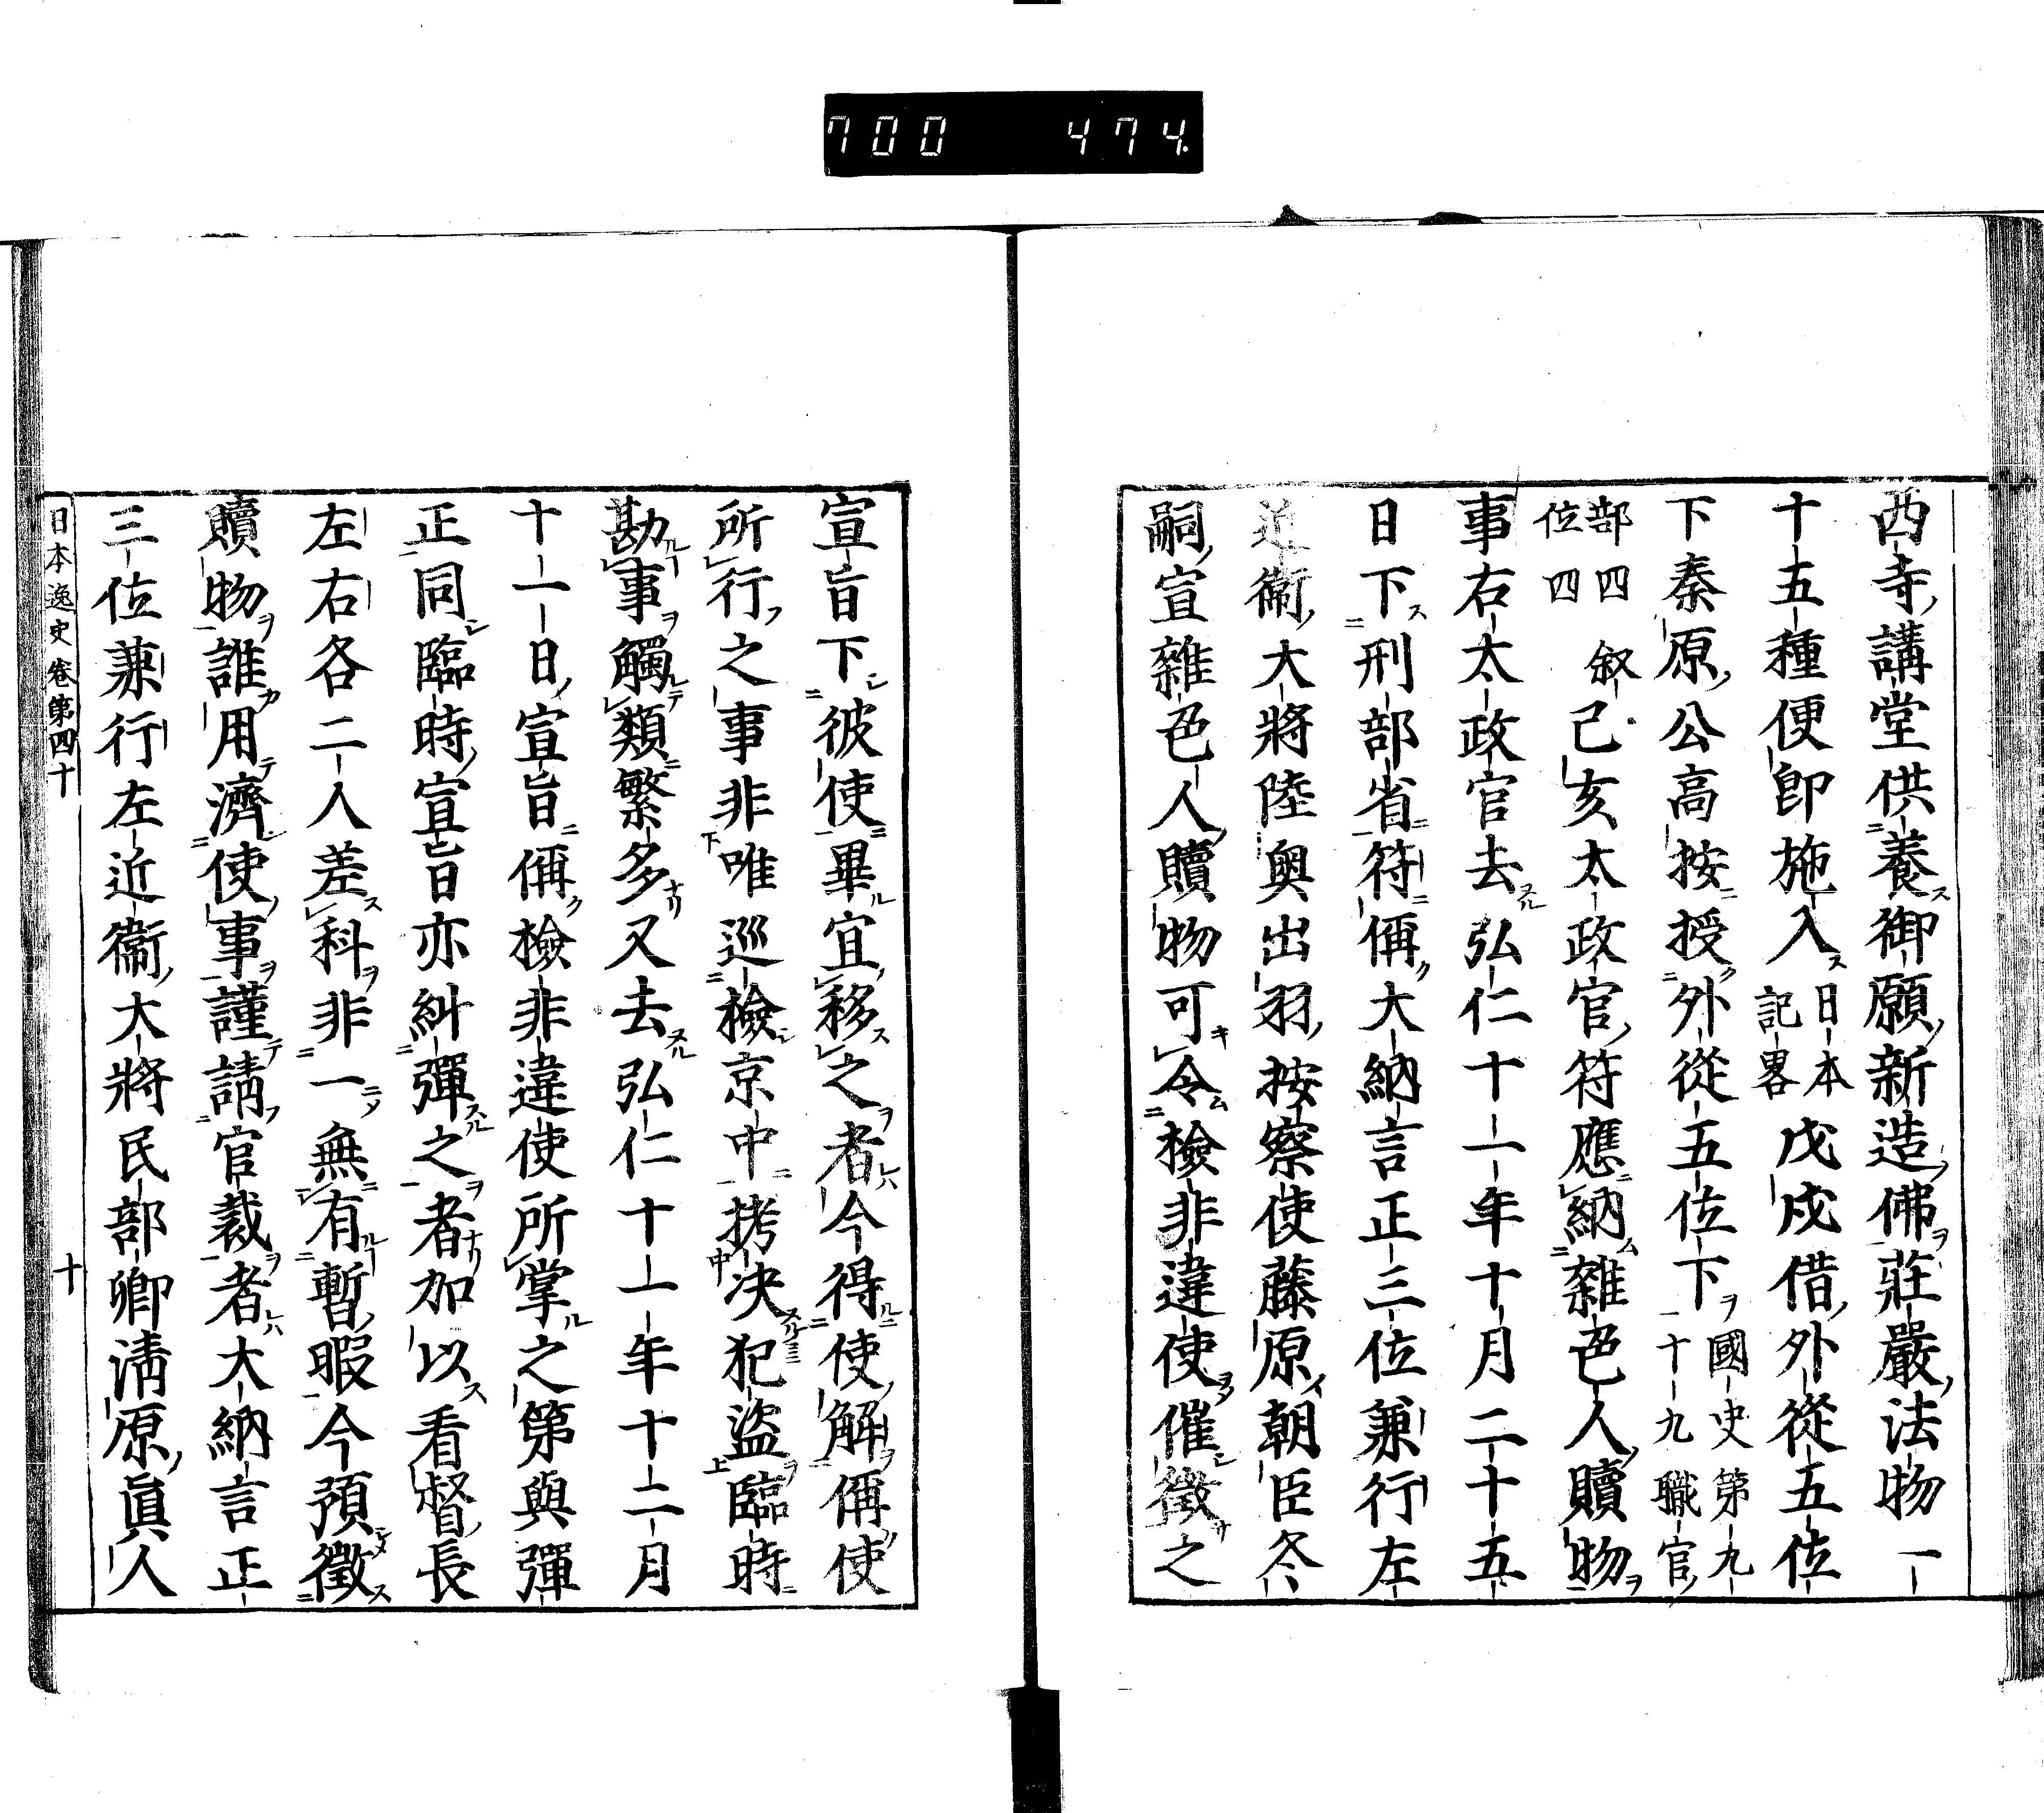 700 474
西寺講堂供養御願新造佛莊嚴法物一
十五種便卽施入日本記畧戊戌借外從五位
下秦原公高按授外從五位下國史第九十九職官
部四叙位四己亥太政官符應納雜色人贖物
事右太政官去弘仁十一年十月二十五
日下刑部省符偁大納言正三位兼行左
近衞大將陸奥出羽按察使藤原朝臣冬
嗣宣雜色人贖物可令檢非違使催徵之
宣旨下彼使畢宜移之者今得使解偁使
所行之事非唯巡檢京中拷决犯盗臨時
勘事觸類繁多又去弘仁十一年十二月
十一日宣旨偁檢非違使所掌之第與彈
正同臨時宣旨亦糾彈之者加以看督長
左右各二人差科非一無有暫暇今預徵
贖物誰用濟使事謹請官裁者大納言正
三位兼行左近衞大將民部卿淸原眞人
日本逸史卷第四十 十